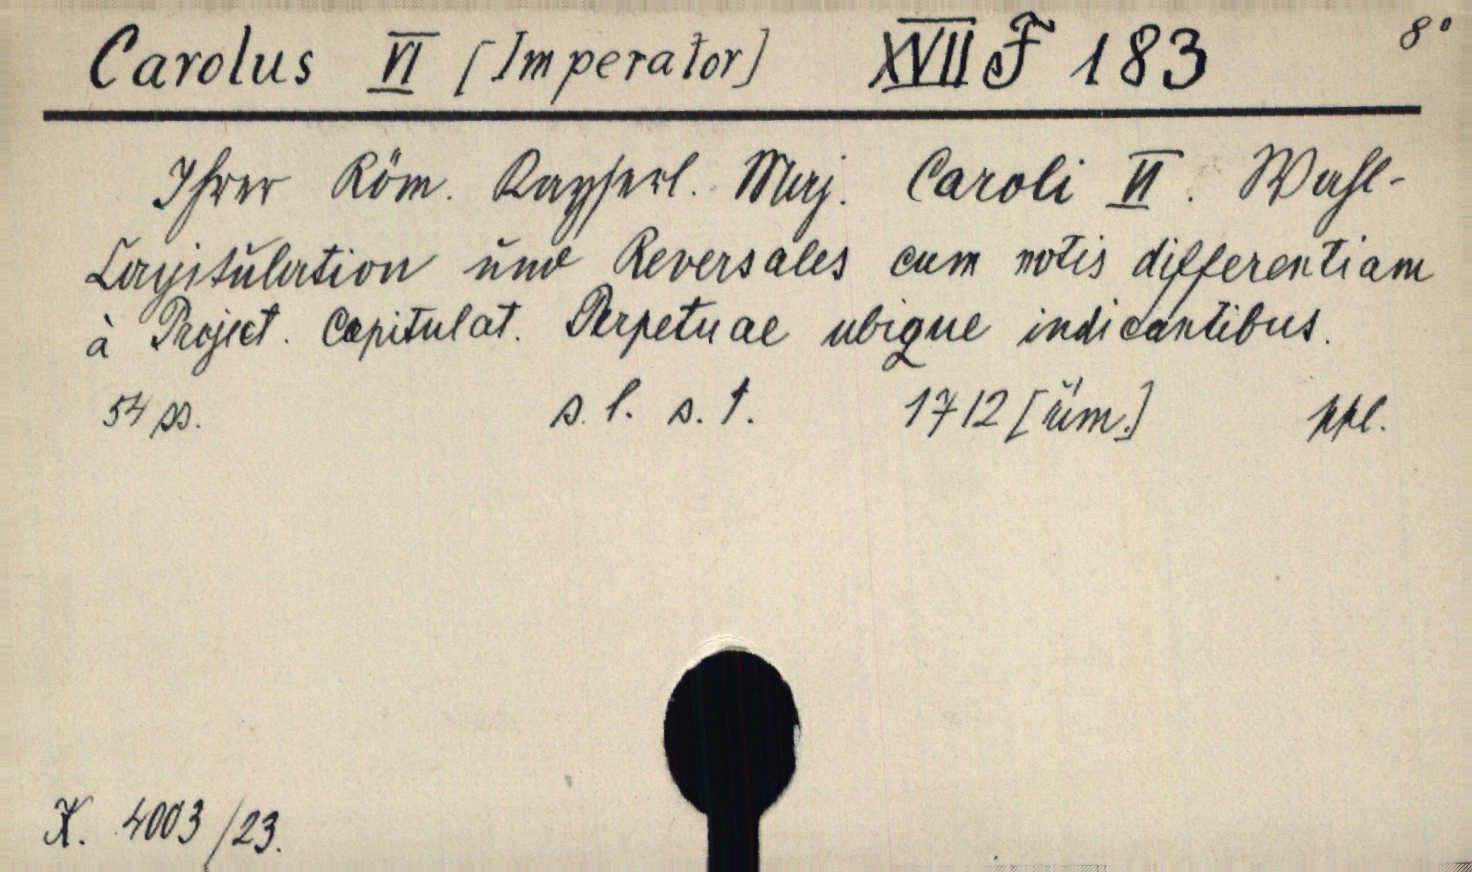 Carolus VI [Imperator] XVII F 183 8°
Ihrer Röm. Kayserl. Maj. Caroli VI. Wahl-
Capitulation und Reversales cum notis differentiam
à Project. Capitulat. Perpetuae ubique indicantibus.
54 ss. s. l. s. t. 1712 [üm.] ppl.
K. 4003/23.